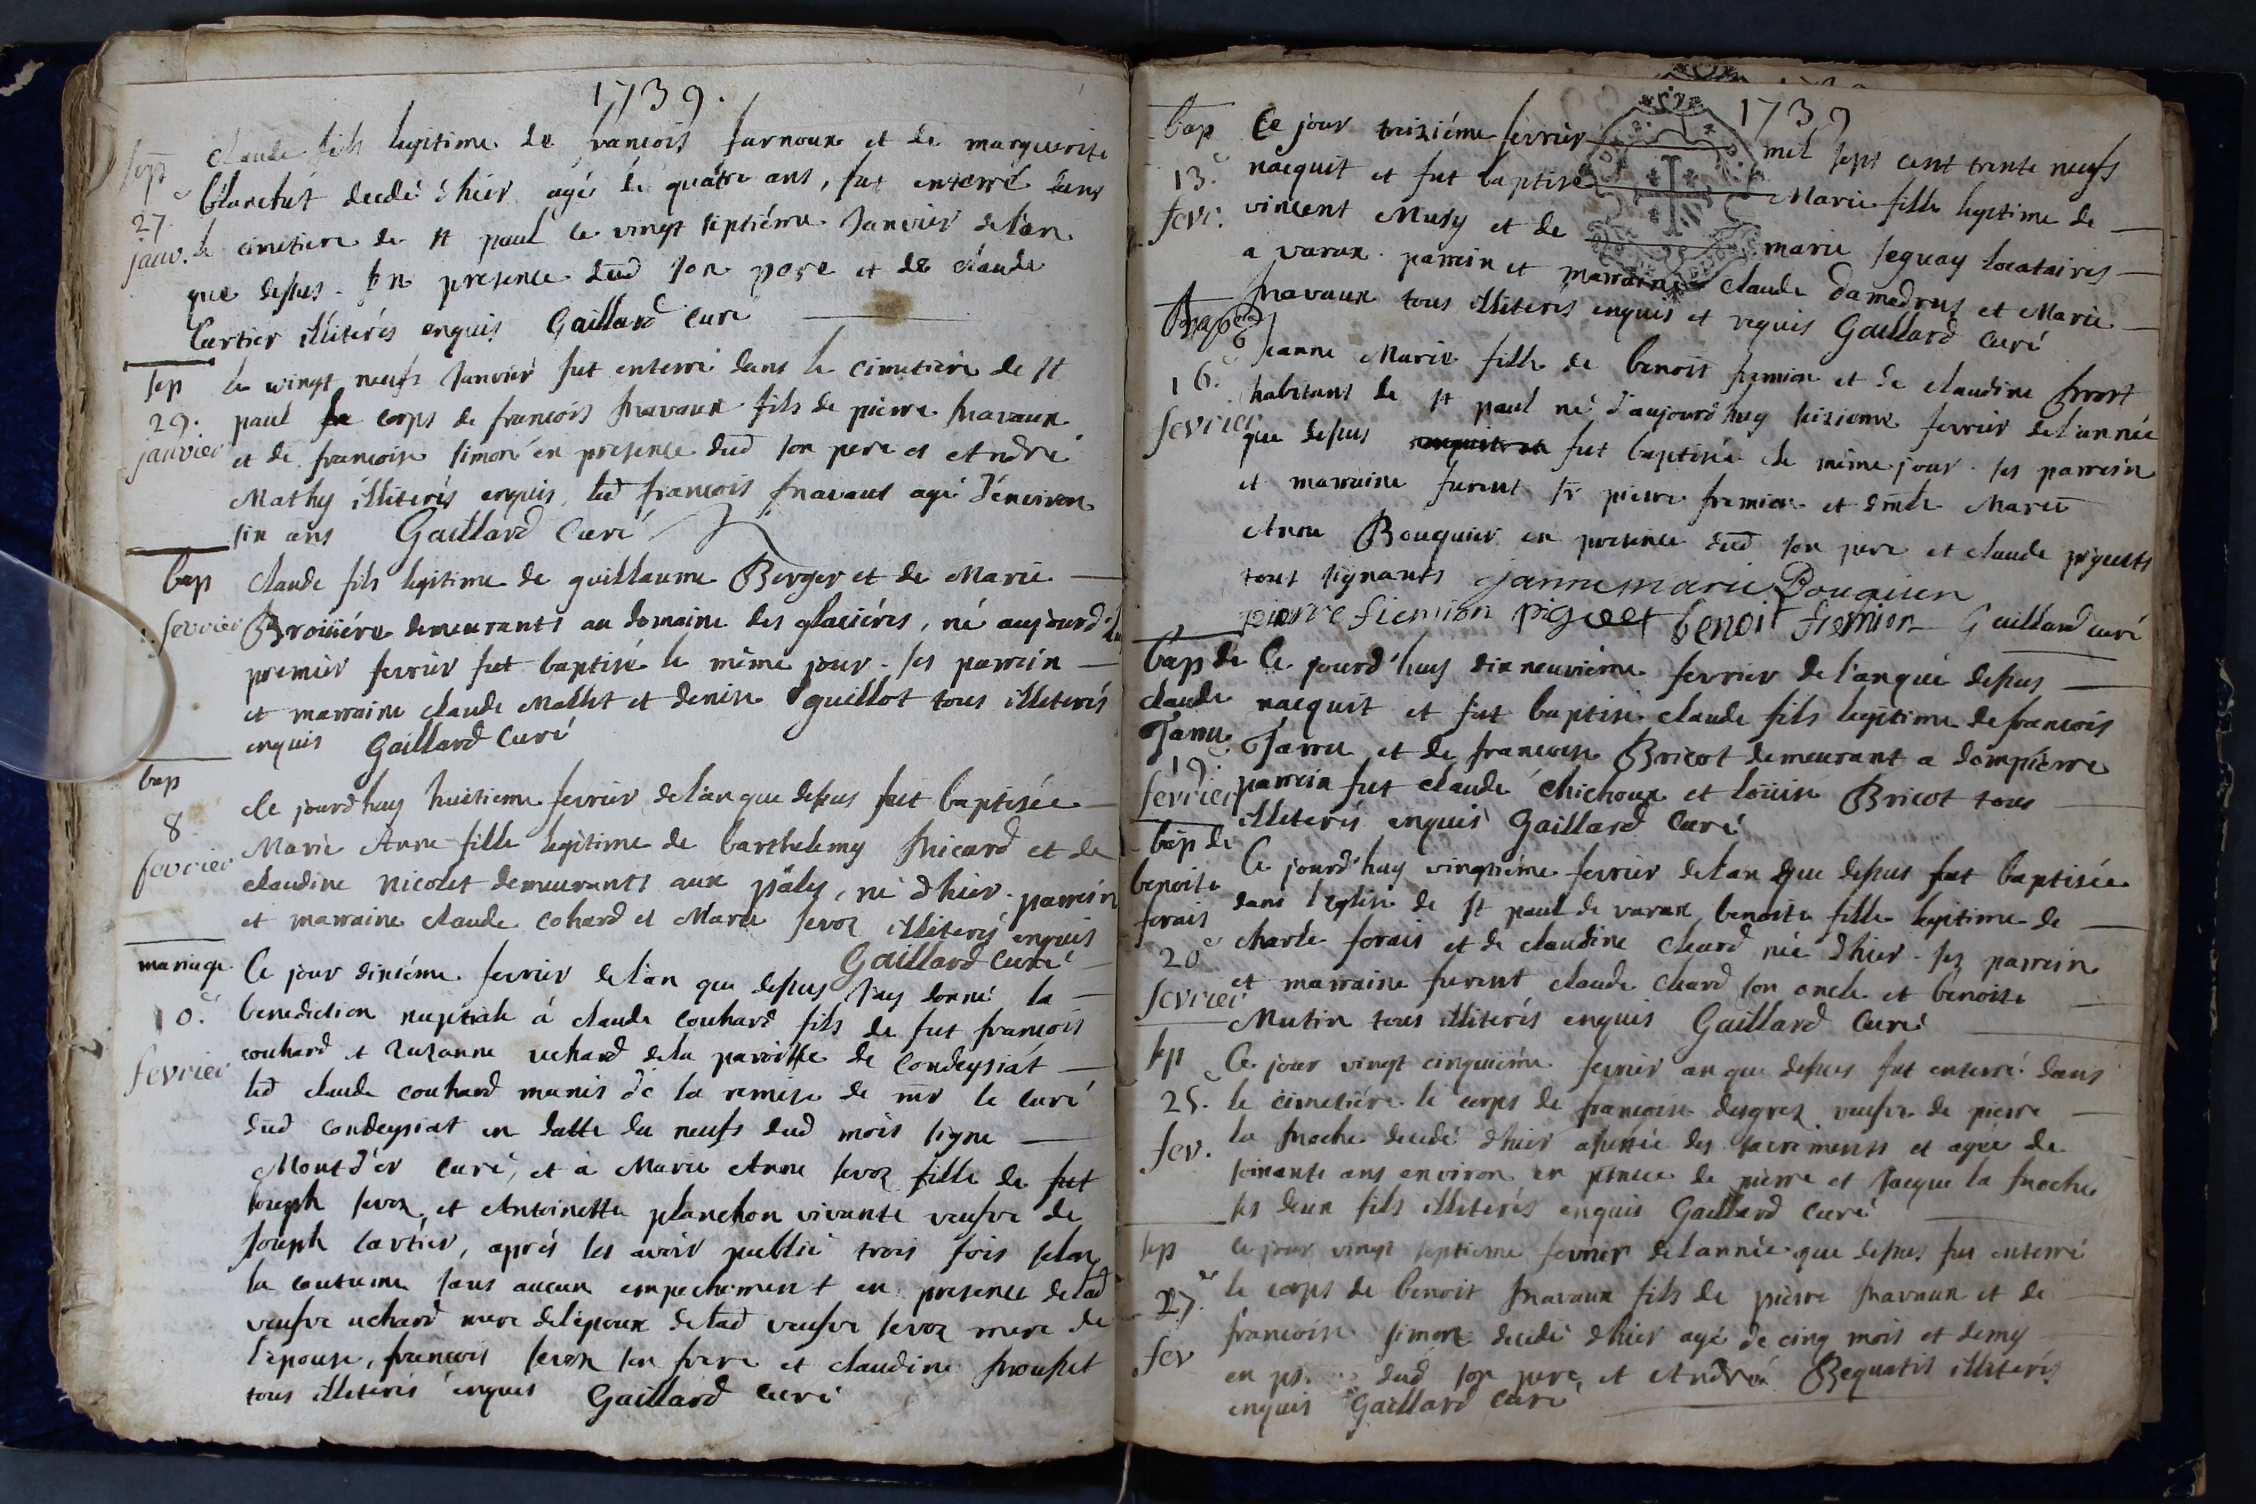 1739.
sep
27.e
janv.
claude fils legitime de francois furnoux et de marguerite
blanchet decedé d'hier agé de quatre ans, fut enterré dans
le cimetiere de st paul ce vingt septiéme Janvier de l'an
que dessus. En presence dud son pere et de claude
Cartier illiterés enquis Gaillard Curé
sep
29.
janvier
le vingt neufs Janvier fut enterré dans le cimetiére de st
paul le corps de francois Travaux fils de pierre Travaux
et de francoise simon en presence dud son pere et André
Mathy illiterés enquis, led francois Travaux agé d'environ
six ans Gaillard Curé
bap
1. fevrier
claude fils legitime de guillaume Berger et de Marie
Broüiére demeurants au domaine des glaciéres, né aujourd'hu
premier fevrier fut baptisé le méme jour. ses parrein
et marraine claude Mallet et denise guillot tous illeterés
enquis Gaillard Curé
bap
8
fevrier
Ce jourdhuy huitieme fevrier de l'an que dessus fut baptisée
Marie Anne fille legitime de barthelemy Micard et de
claudine nicolet demeurants aux pâly, né d'hier. parrein
et marraine claude cohard et Marie sevoz illiterés enquis
Gaillard Curé
mariage
10.e
fevrier
Ce jour dixiéme fevrier de l'an que dessus J'ay donné la
benediction nuptiale á claude couhard fils de fut francois
couhard et Suzanne uchard de la paroisse de Condeysiat
led claude couhard munis de la remise de mr le curé
dud condeysiat en datte du neufs dud mois signe
Mont d'or curé, et á Marie Anne sevoz fille de fut
Joseph sevoz et Antoinette planchon vivante veufve de
Joseph Cartier, aprés les avoir publié trois fois selon
la coutume sans aucun empechement en presence de lad
veufve uchard mere de l'époux de lad veufve sevoz mere de
l'epouse, francois sevoz son frere et claudine Trousset
tous illeterés enquis Gaillard curé
1739
bap
13.e
fevr.
Ce jour treiziéme fevrier mil sept cent trente neufs
nacquit et fut baptisé Marie fille legitime de
vincent Musy et de marie seguay locataires
a varax. parrein et marraine claude damedrus et Marie
Travaux tous illiterés enquis et requis Gaillard Curé
bap
16.e
fevrier
Jeanne Marie fille de benoit fremion et de claudine Prost
habitant de st paul né d'aujourd'huy seizieme fevrier de l'année
que dessus fut baptisée le même jour. ses parrein
et marraine furent sr pierre fremion et dmlle Marie
Anne Bouquier en presence dud son pere et claude piguets
tous signants jannemarie Bouquien
pierre fremion piguet benoit fremion Gaillard curé
bap de
claude
Jarru
19.e
fevrier
Ce jourd'huy dix neuviéme fevrier de l'anqué dessus
nacquit et fut baptisé claude fils legitime de francois
Jarru et de francoise Bricot demeurant a dompierre
parrein fut claude Chichoux et loüise Bricot tous
illiterés enquis Gaillard Curé
bap de
benoite
forais
20.e
fevrier
Ce jourd'huy vingtiéme fevrier de l'an que dessus fut baptisée
dans l'eglise de st paul de varax, benoite fille legitime de
charle forais et de claudine Chard née d'hier. ses parrein
et marraine furent claude Chard son oncle et benoite
Mutin tous illiterés enquis Gaillard Curé
sep
25.
fev.
Ce jour vingt cinquiéme fevrier an que dessus fut enterré dans
le cimetiére le corps de francoise desgrez veufve de pierre
la Troche decedé d'hier assistée des sacrements et agée de
soixante ans environ en ptnce de pierre et Jacque la Troche
ses deux fils illiterés enquis Gaillard Curé
sep
27.
fev
Ce jour vingt septieme fevrier de l'année que dessus fut enterré
le corps de benoit Travaux fils de pierre Travaux et de
francoise simon decedé d'hier agé de cinq mois et demy
en dud son pere et André Bequatis illiterés
enquis Gaillard Curé